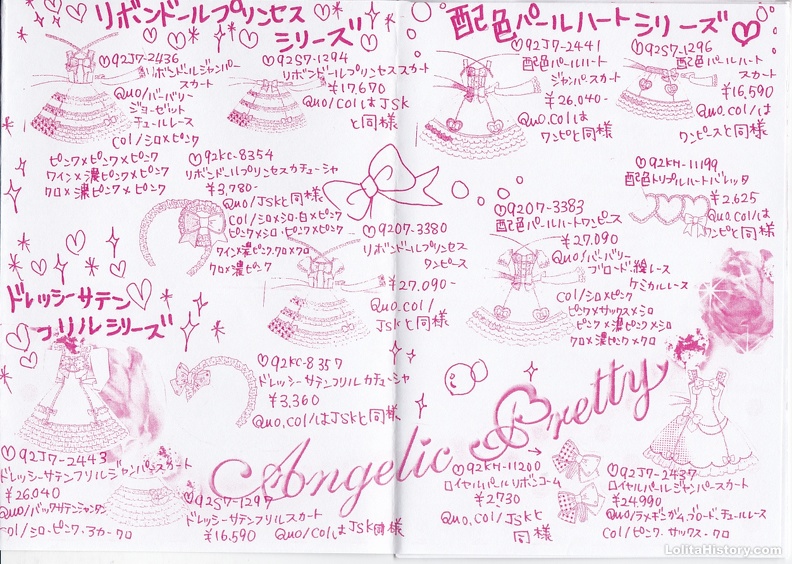 リボンドールプリンセス
シリーズ
♡92J7-2436
リボンドールジャンパー
スカート
Quo/バーバリー
ジョーゼット
チュールレース
Col/シロ×ピンク
ピンク×ピンク×ピンク
ワイン×濃ピンク×ピンク
クロ×濃ピンク×ピンク
♡92S7-1294
リボンドールプリンセススカート
¥17,670
Quo/ColはJSK
と同様
♡92KC-8354
リボンドールプリンセスカチューシャ
¥3,780-
Quo/JSKと同様
Col/シロ×シロ・白×ピンク
ピンク×シロ・ピンク×ピンク
ワイン×濃ピンク・クロ×クロ
クロ×濃ピンク
♡9207-3380
リボンドールプリンセス
ワンピース
¥27,090-
Quo.Col/
JSKと同様
ドレッシーサテン
フリルシリーズ
♡92KC-8357
ドレッシーサテンフリルカチューシャ
¥3,360
Quo,Col/はJSKと同様
♡92J7-2443
ドレッシーサテンフリルジャンパースカート
¥26,040
Quo/バックサテンシャンタン
Col/シロ・ピンク・3カ・クロ
♡92S7-1297
ドレッシーサテンフリルスカート
¥16,590
Quo/ColはJSK同様
配色パールハートシリーズ♡
♡92J7-2441
配色パールハート
ジャンパースカート
¥26,040-
Quo.Col/は
ワンピと同様
♡92S7-1296
配色パールハート
スカート
¥16,590
Quo.Col/は
ワンピースと同様
♡92KH-11199
配色トリプルハートバレッタ
¥2,625
Quo/Colは
ワンピと同様
♡9207-3383
配色パールハートワンピース
¥27,090
Quo/バーバリー
ブロード・綿レース
ケミカルレース
Col/シロ×ピンク
ピンク×サックス×シロ
ピンク×濃ピンク×シロ
クロ×濃ピンク×クロ
Angelic Pretty
♡92KH-11200
ロイヤルパールリボンゴーム
¥2,730
Quo,Col/JSKと
同様
♡92J7-2437
ロイヤルパールジャンパースカート
¥24,990
Quo/ラメギンガム、ブロード、チュールレース
Col/ピンク・サックス・クロ
LolitaHistory.com